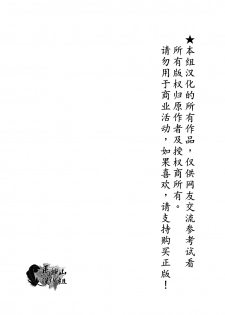 ★本组汉化的所有作品，仅供网友交流参考试看
所有版权归原作者及授权商所有。
请勿用于商业活动，如果喜欢，请支持购买正版！